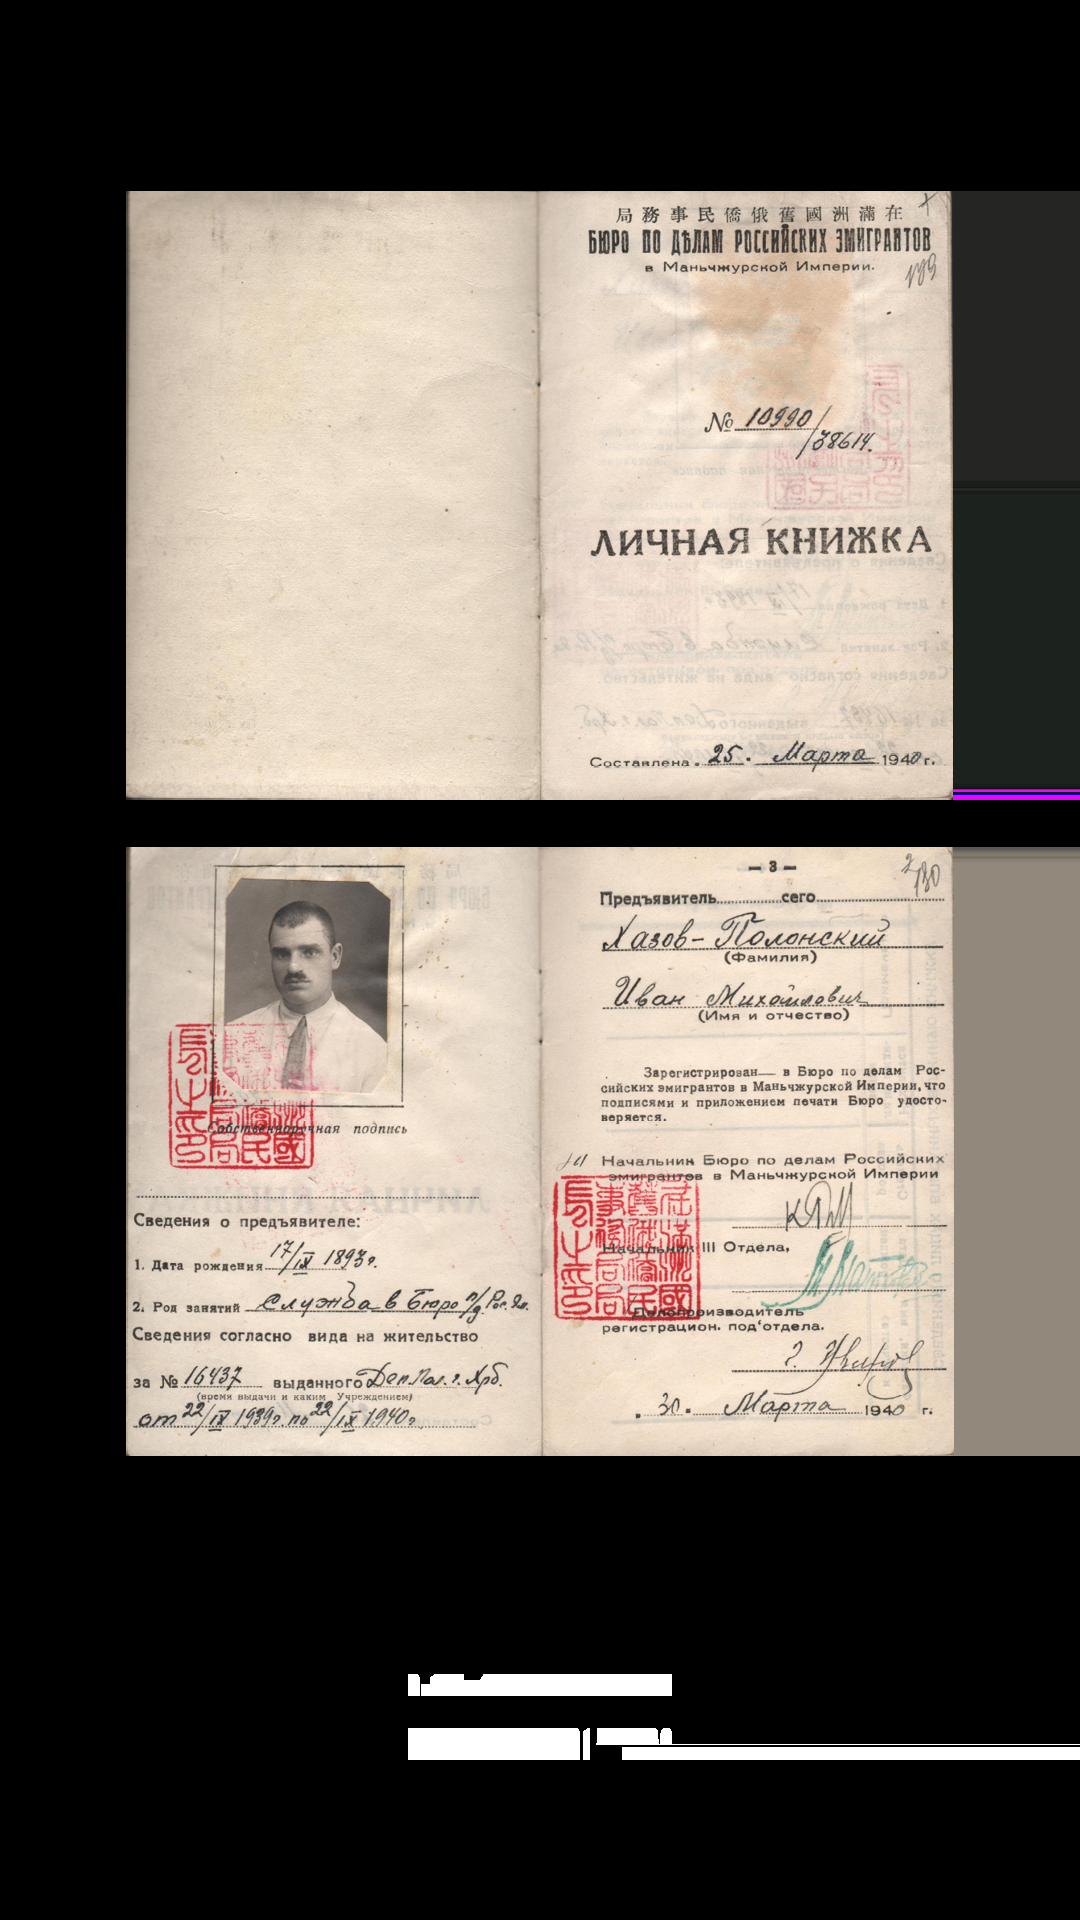 局務事民僑俄舊國洲滿在
БЮРО ПО ДѢЛАМ РОССИЙСКИХ ЭМИГРАНТОВ
в Маньчжурской Империи.
№ 10990/38614.
ЛИЧНАЯ КНИЖКА
Составлена 25. Марта 1940 г.
Собственноручная подпись
Сведения о предъявителе:
1. Дата рождения 17/IX 1893 г.
2. Род занятий Служба в Бюро п/д Рос. Эм.
Сведения согласно вида на жительство
за № 16437 выданного Деп. Пол. г. Хрб.
(время выдачи и каким Учреждением)
от 22/IX 1939 г. по 22/IX 1940 г.
— 3 —
130
Предъявитель сего
Хазов-Полонский
(Фамилия)
Иван Михайлович
(Имя и отчество)
Зарегистрирован— в Бюро по делам Рос-
сийских эмигрантов в Маньчжурской Империи, что
подписями и приложением печати Бюро удосто-
веряется.
Начальник Бюро по делам Российских
эмигрантов в Маньчжурской Империи
Начальник III Отдела,
Делопроизводитель
регистрацион. под'отдела.
30. Марта 1940 г.